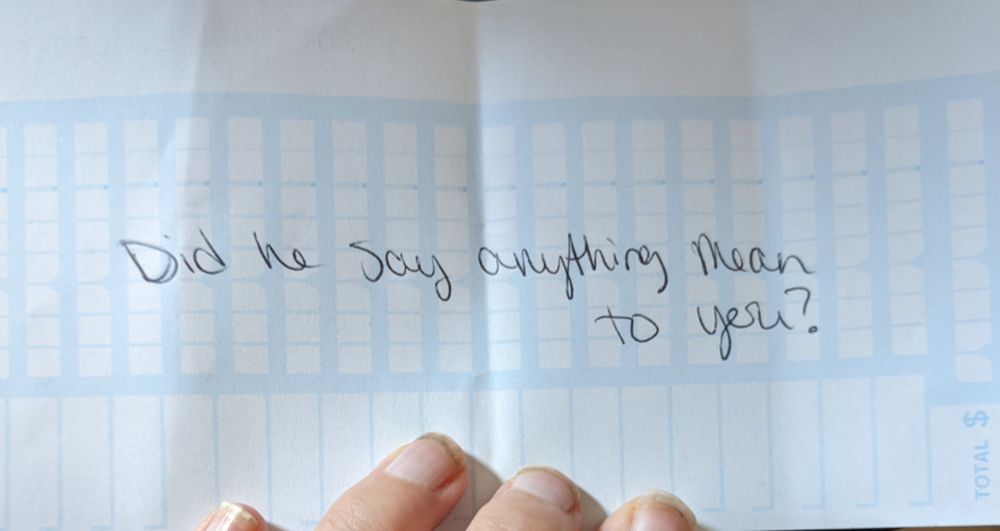 Did he say anything mean
to you?
TOTAL $